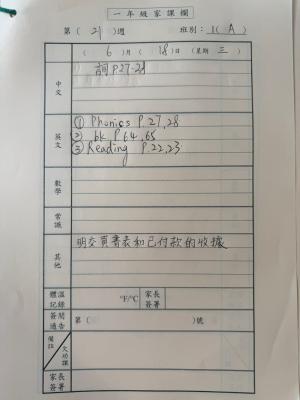 一年級家課欄
第( 21 )週 班別：1( A )
( 6 )月( 18 )日(星期 三 )
中文
詞P.27-28
英文
① Phonics P.27,28
② bk P.64,65
③ Reading P.22,23
數學
常識
其他
明交買書表和已付款的收據
體溫記錄 °F/°C 家長簽署
簽閱通告 第( )號
備註 欠功課
家長簽署